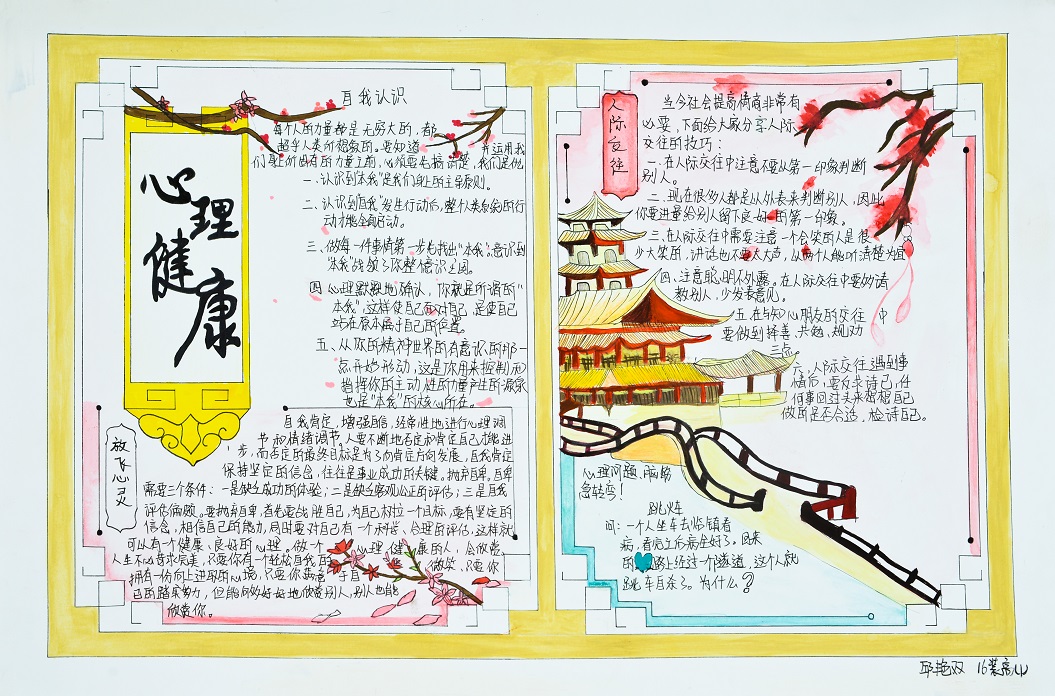 心理健康
自我认识
每个人的力量都是无穷大的，都
超乎人类所想象的。要知道 并运用我
们身上所固有的力量之前，必须要先搞清楚，我们是他
一、认识到"本我"是我们身上的主导原则。
二、认识到"自我"发生行动后，整个人类意象的行
动才能全面启动。
三、做每一件事情第一步先找出"本我"，意识到
"本我"战领了你整个意识之国。
四、心理默默地确认，你就是所谓的"
本我"，这样使自己面对自己，是使自己
站在原本属于自己的位置。
五、从你的精神世界的有意识的那一
点开始移动，这是你用来控制和
指挥你的主动性的力量产生的源泉
也是"本我"的核心所在。
放飞心灵
自我肯定，增强自信，经常性地进行心理调
节和情绪调节。人要不断地否定和肯定自己才能进
步，而否定的最终目标是为了向肯定方向发展，自我肯定
保持坚定的信念，往往是事业成功的关键。抛弃自卑，自卑
需要三个条件：一是缺乏成功的体验；二是缺乏客观公正的评估；三是自我
评估偏颇。要抛弃自卑，首先要战胜自己，为自己树立一个目标，要有坚定的
信念，相信自己的能力，同时要对自己有一个科学、合理的评估，这样就
可以有一个健康、良好的心理。做一个 心理健康的人，会欣赏
人生不必苛求完美，只要你有一个轻松自我的 微笑，只要你
拥有一份向上进取的心境，只要你 于自
己的踏实努力，但能够好好地欣赏别人，别人也能
欣赏你。
人际交往
当今社会提高情商非常有
必要，下面给大家分享人际
交往的技巧：
一、在人际交往中注意不要从第一印象判断
别人。
二、现在很多人都是从外表来判断别人，因此
你要进量给别人留下良好的第一印象。
三、在人际交往中需要注意一个会笑的人是很
少大笑的，讲话也不要太大声，从两个人能听清楚为宜
四、注意聪明不外露。在人际交往中要多请
教别人，少发表意见。
五、在与知心朋友的交往中
要做到择善、共勉、规劝
三点。
六、人际交往遇到事
情后，要反求诸己，任
何事回过头来想想自己
做的是否合适，检讨自己。
心理问题、脑筋
急转弯！
跳火车
问：一个人坐车去临镇看
病，看完之后病全好了。回来
的 路上经过一个隧道，这个人就
跳车自杀了。为什么？
邱艳双 16装高